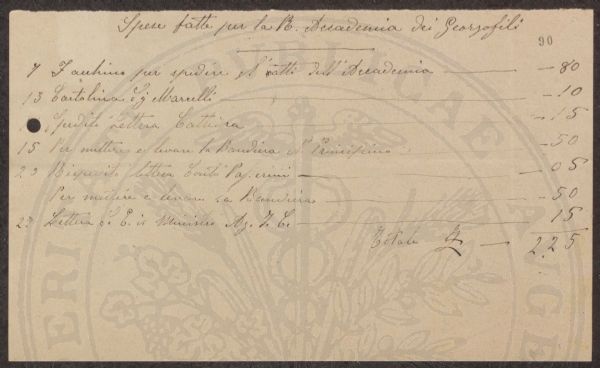 Spese fatte per la R. Accademia dei Georgofili
90
7 Facchino per spedire gl'atti dell'Accademia — 80
13 Cartolina Sig Marelli — 10
Spedito Lettera — 15
15 Per mettere e levare la Bandiera — 50
22 Ricevuto lettera Conte — 05
Per mettere e levare la Bandiera — 50
Lettera S. E. il Ministro Ag. I. C. 15
Totale £ — 2.25